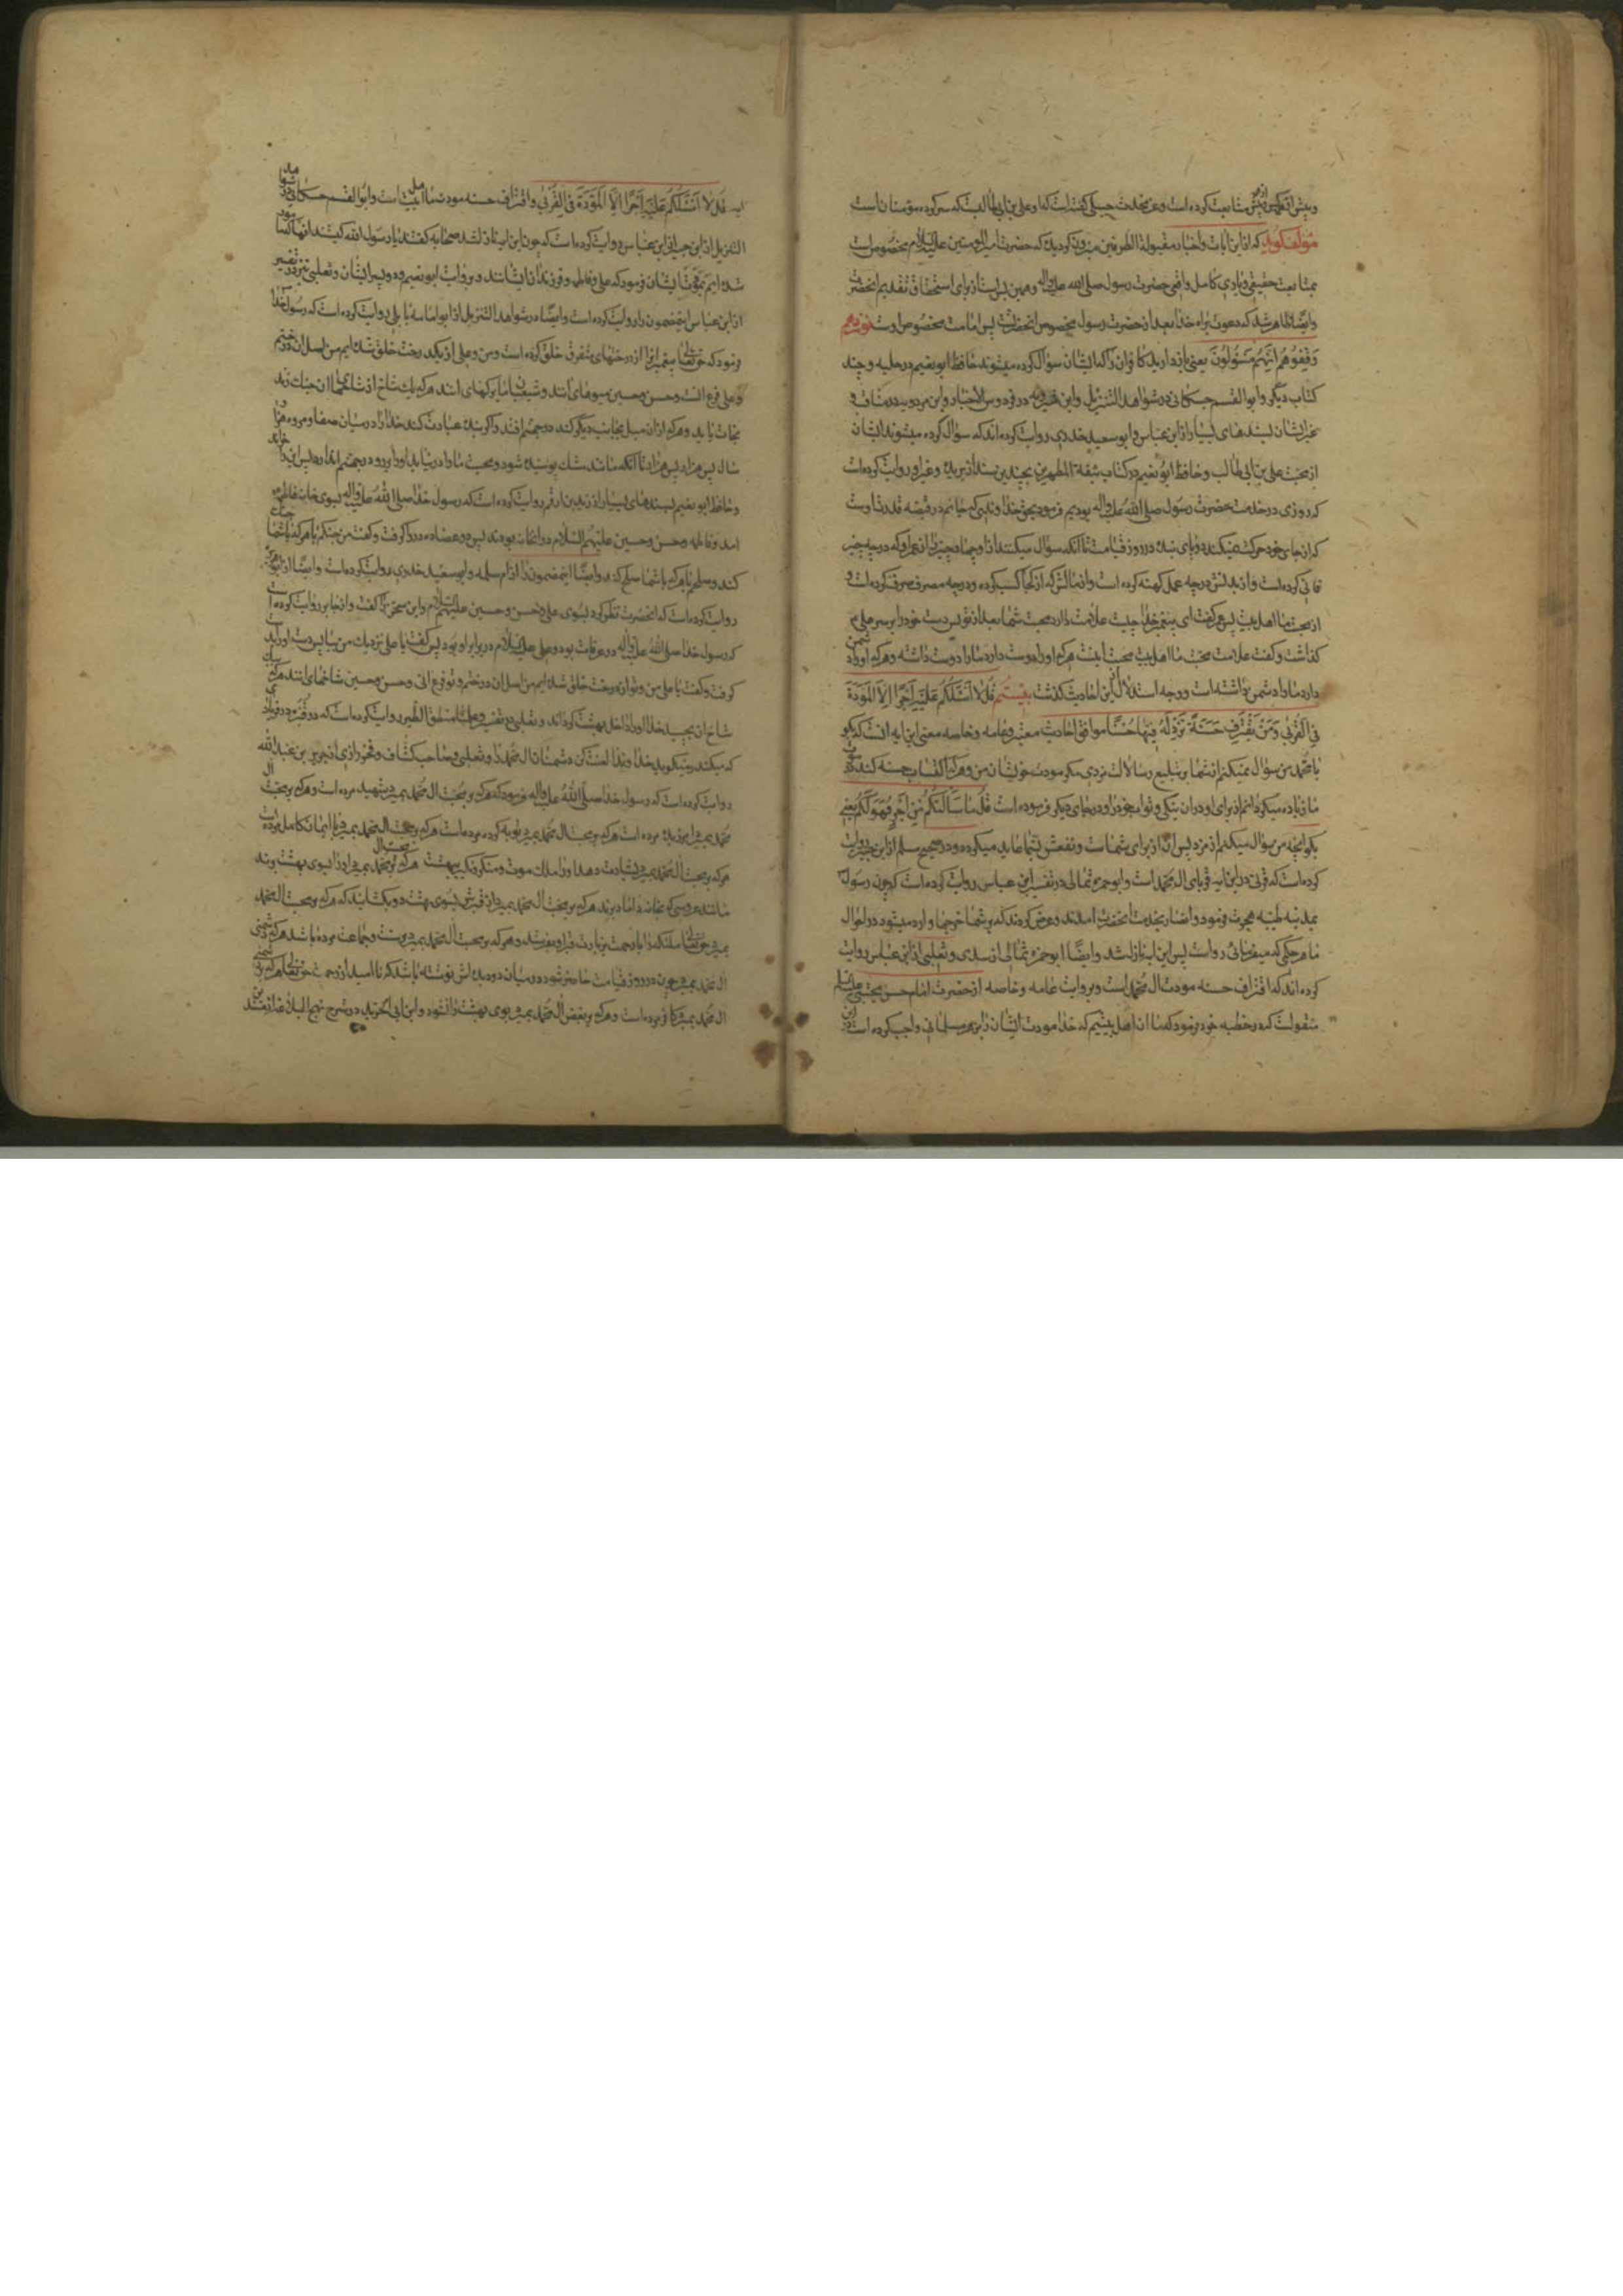 و پیش از همه کس متابعت کرده است و عز محدث حنبلی گفته است که او علی بن ابی طالب که سرکرده مؤمنان است
مؤلف گوید که از این آیات و اخبار مقبولة الطرفین معلوم گردید که حضرت امیر المؤمنین علیه السلام مخصوص است
بمتابعت حقیقی و یاری کامل واقعی حضرت رسول صلی الله علیه وآله و همین بس است از برای استحقاق تقدیم آنحضرت
و ایضا ظاهر شد که دعوت براه خدا بعد از حضرت رسول مخصوص آنحضرتست پس امامت مخصوص اوست نوزدهم
وَقِفُوهُم اِنَّهُم مَسئُولُونَ یعنی بازدارید کافران را که ایشان سؤال کرده میشوند حافظ ابو نعیم در حلیه و چند
کتاب دیگر و ابو القسم حسکانی در شواهد التنزیل و ابن شیرویه در فردوس الاخبار و ابن مردویه در مناقب و
غیر ایشان بسندهای بسیار از ابن عباس و ابو سعید خدری روایت کرده اند که سؤال کرده میشوند ایشان
از محبت علی بن ابی طالب و حافظ ابو نعیم در کتاب منقبة المطهرین بچندین سند از بریده و غیر او روایت کرده است
که روزی در خدمت حضرت رسول صلی الله علیه وآله بودیم فرمود بحق خداوندی که جانم در قبضه قدرت اوست
که از جای خود حرکت نمیکند دو پای بنده در روز قیامت تا آنکه سؤال میکنند از او چهار چیز از عمر او که در چه چیز
فانی کرده است و از بدنش در چه عمل کهنه کرده است و از مالش که از کجا کسب کرده و در چه مصرف صرف کرده است و
از محبت ما اهل بیت پس عمر گفت ای پیغمبر خدا چیست علامت محبت شما بعد از تو پس دست خود را بر سر علی
گذاشت و گفت علامت محبت ما اهل بیت محبت اینست هر که او را دوست دارد ما را دوست داشته و هر که او را دشمن
دارد ما را دشمن داشته است و وجه استدلال از این احادیث گذشت بیستم قُل لا اَسئَلُکُم عَلَیهِ اَجراً اِلَّا المَوَدَّةَ
فِی القُربی وَمَن یَقتَرِف حَسَنَةً نَزِد لَهُ فِیها حُسناً موافق احادیث معتبره عامه و خاصه معنی این آیه آنست که بگو
یا محمد من سؤال نمیکنم از شما بر تبلیغ رسالت مزدی مگر مودت خویشان من و هر که اکتساب حسنه کند
ما زیاده میگردانیم از برای او در آن نیکی و ثواب خود را و در جای دیگر فرموده است قُل ما سَاَلتُکُم مِن اَجرٍ فَهُوَ لَکُم یعنی
بگو آنچه من سؤال میکنم از مزد پس آن از برای شماست و نفعش بشما عاید میگردد و در صحیح مسلم از ابن جبیر روایت
کرده است که قربی در این آیه قربای آل محمد است و ابو حمزه ثمالی در تفسیر ابن عباس روایت کرده است که چون رسول
بمدینه طیبه هجرت فرمود و انصار بخدمت آنحضرت آمدند و عرض کردند که بر شما خرجها وارد میشود در اموال
ما هر حکمی که میفرمائی رواست پس این آیه نازل شد و ایضا ابو حمزه ثمالی از سدی و ثعلبی از ابن عباس روایت
کرده اند که اقتراف حسنه مودت آل محمد است و بروایت عامه و خاصه از حضرت امام حسن مجتبی علیه السلام
منقولست که در خطبه خود فرمود که ما از آن اهل بیتیم که خدا مودت ایشان را بر هر مسلمانی واجب کرده است
قُل لا اَسئَلُکُم عَلَیهِ اَجراً اِلَّا المَوَدَّةَ فِی القُربی و اقتراف حسنه مودت ما اهل بیت است و ابو القسم حسکانی در شواهد
التنزیل از ابن جبیر از ابن عباس روایت کرده است که چون این آیه نازل شد صحابه گفتند یا رسول الله کیستند آنها که
شده ایم بمودت ایشان فرمود که علی و فاطمه و فرزندان ایشانند و بروایت ابو نعیم دو پسر ایشان و ثعلبی نیز در تفسیر
از ابن عباس این مضمون را روایت کرده است و ایضا در شواهد التنزیل از ابو امامه باهلی روایت کرده است که رسول خدا
فرمود که حق تعالی پیغمبران را از درختهای متفرق خلق کرده است و من و علی از یک درخت خلق شده ایم من اصل آن درختم
و علی فرع آنست و حسن و حسین میوهای آنند و شیعیان ما برگهای آنند هر که بیک شاخ از شاخهای آن چنگ زند
نجات یابد و هر که از آن میل بجانب دیگر کند در جهنم افتد و اگر بنده عبادت کند خدا را در میان صفا و مروه هزار
سال پس هزار سال پس هزار سال تا آنکه مانند مشک پوسیده شود و محبت ما را درنیابد او را برو در جهنم اندازد پس این آیه را خواند
و حافظ ابو نعیم بسندهای بسیار از زید بن ارقم روایت کرده است که رسول خدا صلی الله علیه وآله بسوی خانه فاطمه
آمد و فاطمه و حسن و حسین علیهم السلام در آنخانه بودند پس دو عضاده در را گرفت و گفت من جنگم با هر که با شما جنگ
کند و صلحم با هر که با شما صلح کند و ایضا این مضمون را از ام سلمه و ابو سعید خدری روایت کرده است و ایضا از ابو هریره
روایت کرده است که آنحضرت نظر کرد بسوی علی و حسن و حسین علیهم السلام و این سخن را گفت و از جابر روایت کرده است
که رسول خدا صلی الله علیه وآله در عرفات بود و علی علیه السلام در برابر او بود پس گفت یا علی نزدیک من بیا پس دست او را
گرفت و گفت یا علی من و تو از یک درخت خلق شده ایم من اصل آن درختم و تو فرع آنی و حسن و حسین شاخهای آنند هر که بیک
شاخ آن بچسبد خدا او را داخل بهشت گرداند و ثعلبی در تفسیر علمنا منطق الطیر روایت کرده است که
که میکند میگوید خداوندا لعنت کن دشمنان آل محمد را و ثعلبی و صاحب کشاف و فخر رازی از جریر بن عبد الله
روایت کرده است که رسول خدا صلی الله علیه وآله فرمود که هر که بر محبت آل محمد بمیرد شهید مرده است و هر که بر محبت آل
محمد بمیرد آمرزیده مرده است هر که بر محبت آل محمد بمیرد توبه کرده مرده است هر که بر محبت آل محمد بمیرد با ایمان کامل مرده است
هر که بر محبت آل محمد بمیرد بشارت دهد او را ملک موت و منکر و نکیر ببهشت هر که بر محبت آل محمد بمیرد او را بسوی بهشت برند
مانند عروسی که بخانه داماد برند هر که بر محبت آل محمد بمیرد از قبرش بسوی بهشت دو در بگشایند که هر که بر محبت آل محمد
بمیرد حق تعالی ملئکه را با رحمت بزیارت قبر او بفرستد و هر که بر محبت آل محمد بمیرد بر سنت و جماعت مرده باشد هر که بر دشمنی
آل محمد بمیرد چون در روز قیامت حاضر شود در میان دو دیده اش نوشته باشد که ناامید از رحمت حق تعالی هر که بر دشمنی
آل محمد بمیرد کافر مرده است و هر که بر بغض آل محمد بمیرد بوی بهشت را نشنود و ابن ابی الحدید در شرح نهج البلاغه از مسند